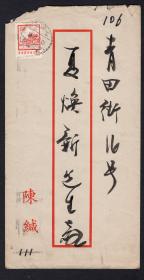 106
青田街16号
夏焕新先生啟
陳緘
111